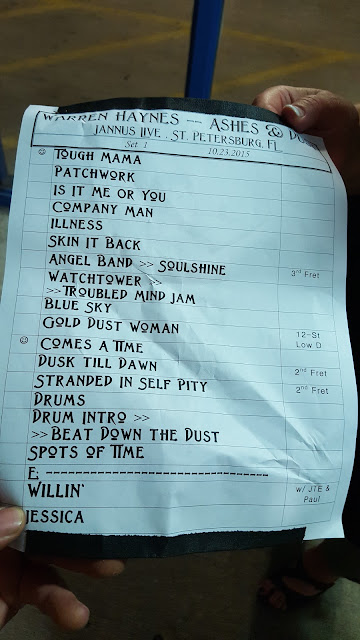 WARREN HAYNES -- ASHES & DUST
JANNUS LIVE . ST. PETERSBURG, FL
Set 1 10.23.2015
☺ TOUGH MAMA
PATCHWORK
IS IT ME OR YOU
COMPANY MAN
ILLNESS
SKIN IT BACK
ANGEL BAND >> SOULSHINE 3rd Fret
WATCHTOWER >>
>>TROUBLED MIND JAM
BLUE SKY
GOLD DUST WOMAN 12-St
Low D
☺ COMES A TIME
DUSK TILL DAWN 2nd Fret
STRANDED IN SELF PITY 2nd Fret
DRUMS
DRUM INTRO >>
>> BEAT DOWN THE DUST
SPOTS OF TIME
E: --------------------------------
WILLIN' w/ JTE &
Paul
JESSICA